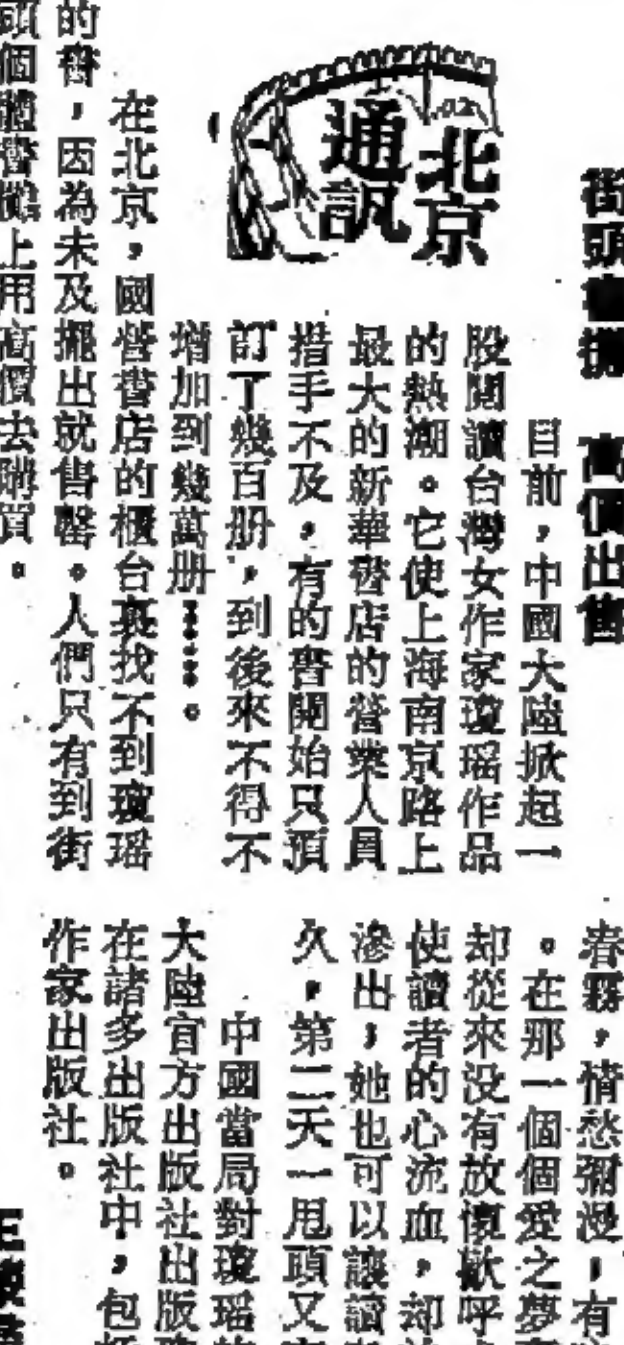 街頭書攤 高價出售
北京
通訊
目前，中國大陸掀起一
股閱讀台灣女作家瓊瑤作品
的熱潮。它使上海南京路上
最大的新華書店的營業人員
措手不及，有的書開始只預
訂了幾百册，到後來不得不
增加到幾萬册……。
在北京，國營書店的櫃台裏找不到瓊瑤
的書，因為未及擺出就售罄。人們只有到街
頭個體書攤上用高價去購買。
春霧，情愁彌漫，有
。在那一個個愛之夢
却從來没有放懷歡呼
使讀者的心流血，却
滲出，她也可以讓讀
久，第二天一甩頭又
中國當局對瓊瑤
大陸官方出版社出版
在諸多出版社中，包括
作家出版社。